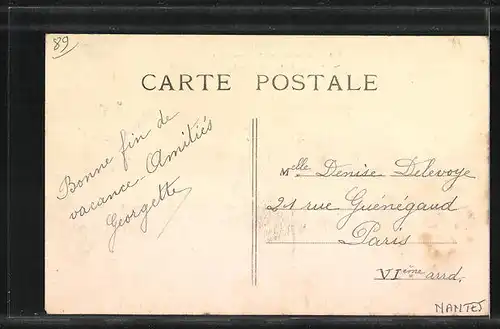 89
CARTE POSTALE
Bonne fin de
vacance. Amitiés
Georgette
Melle Denise Delevoye
21 rue Guénégaud
Paris
VIème arrd.
NANTES